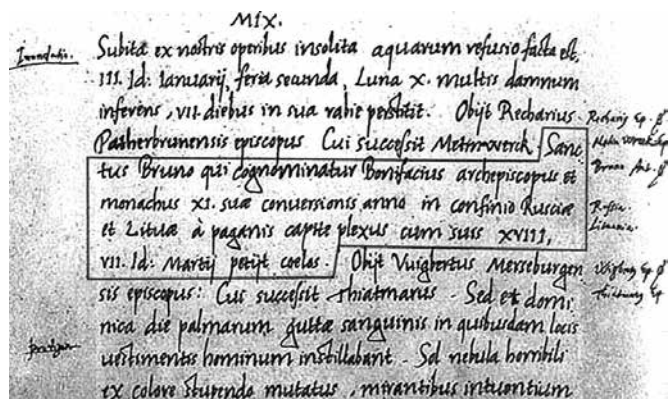 MIX.
Inundatio. Subitæ ex nostris operibus insolita aquarum refusio facta est,
III. Id: Ianuarij, feria secunda, Luna X. multis damnum
inferens, VII. diebus in sua rabie perstitit. Obijt Recharius
Patherbrunensis episcopus Cui successit Meinwerck. Sanc
tus Bruno qui cognominatur Bonifacius archepiscopus et
monachus XI. suæ conversionis anno in confinio Rusciæ
et Lituæ à paganis capite plexus cum suis XVIII,
VII. Id: Martij petijt coelos. Obijt Vuigbertus Merseburgen
sis episcopus: Cui successit Thiatmarus. Sed et domi
nica die palmarum guttæ sanguinis in quibusdam locis
uestimentis hominum instillabant. Sol nebula horribili
ex colore stupendo mutatus, mirantibus intuentium
Bruno
Russia.
Lituania.